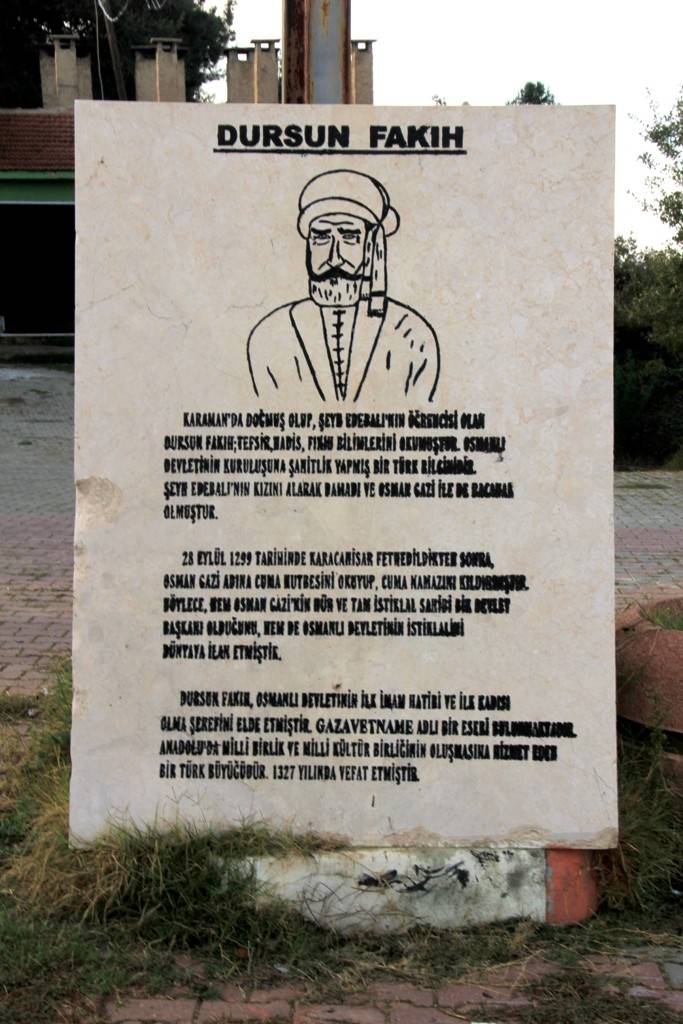 DURSUN FAKIH
KARAMAN'DA DOĞMUŞ OLUP, ŞEYH EDEBALI'NIN ÖĞRENCİSİ OLAN
DURSUN FAKIH;TEFSİR,HADİS, FIKIH BİLİMLERİNİ OKUMUŞTUR. OSMANLI
DEVLETİNİN KURULUŞUNA ŞAHİTLİK YAPMIŞ BİR TÜRK BİLGİNİDİR.
ŞEYH EDEBALI'NIN KIZINI ALARAK DAMADI VE OSMAN GAZİ İLE DE BACANAK
OLMUŞTUR.
28 EYLÜL 1299 TARİHİNDE KARACAHİSAR FETHEDİLDİKTEN SONRA,
OSMAN GAZİ ADINA CUMA HUTBESİNİ OKUYUP, CUMA NAMAZINI KILDIRMIŞTIR.
BÖYLECE, HEM OSMAN GAZİ'NİN HÜR VE TAM İSTİKLAL SAHİBİ BİR DEVLET
BAŞKANI OLDUĞUNU, HEM DE OSMANLI DEVLETİNİN İSTİKLALİNİ
DÜNYAYA İLAN ETMİŞTİR.
DURSUN FAKIH, OSMANLI DEVLETİNİN İLK İMAM HATİBİ VE İLK KADISI
OLMA ŞEREFİNİ ELDE ETMİŞTİR. GAZAVETNAME ADLI BİR ESERİ BULUNMAKTADIR.
ANADOLU'DA MİLLİ BİRLİK VE MİLLİ KÜLTÜR BİRLİĞİNİN OLUŞMASINA HİZMET EDEN
BİR TÜRK BÜYÜĞÜDÜR. 1327 YILINDA VEFAT ETMİŞTİR.